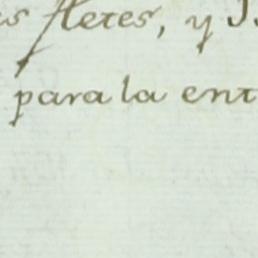 fletes, y
para la ent